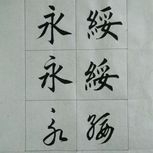 綏綏綏
永永永